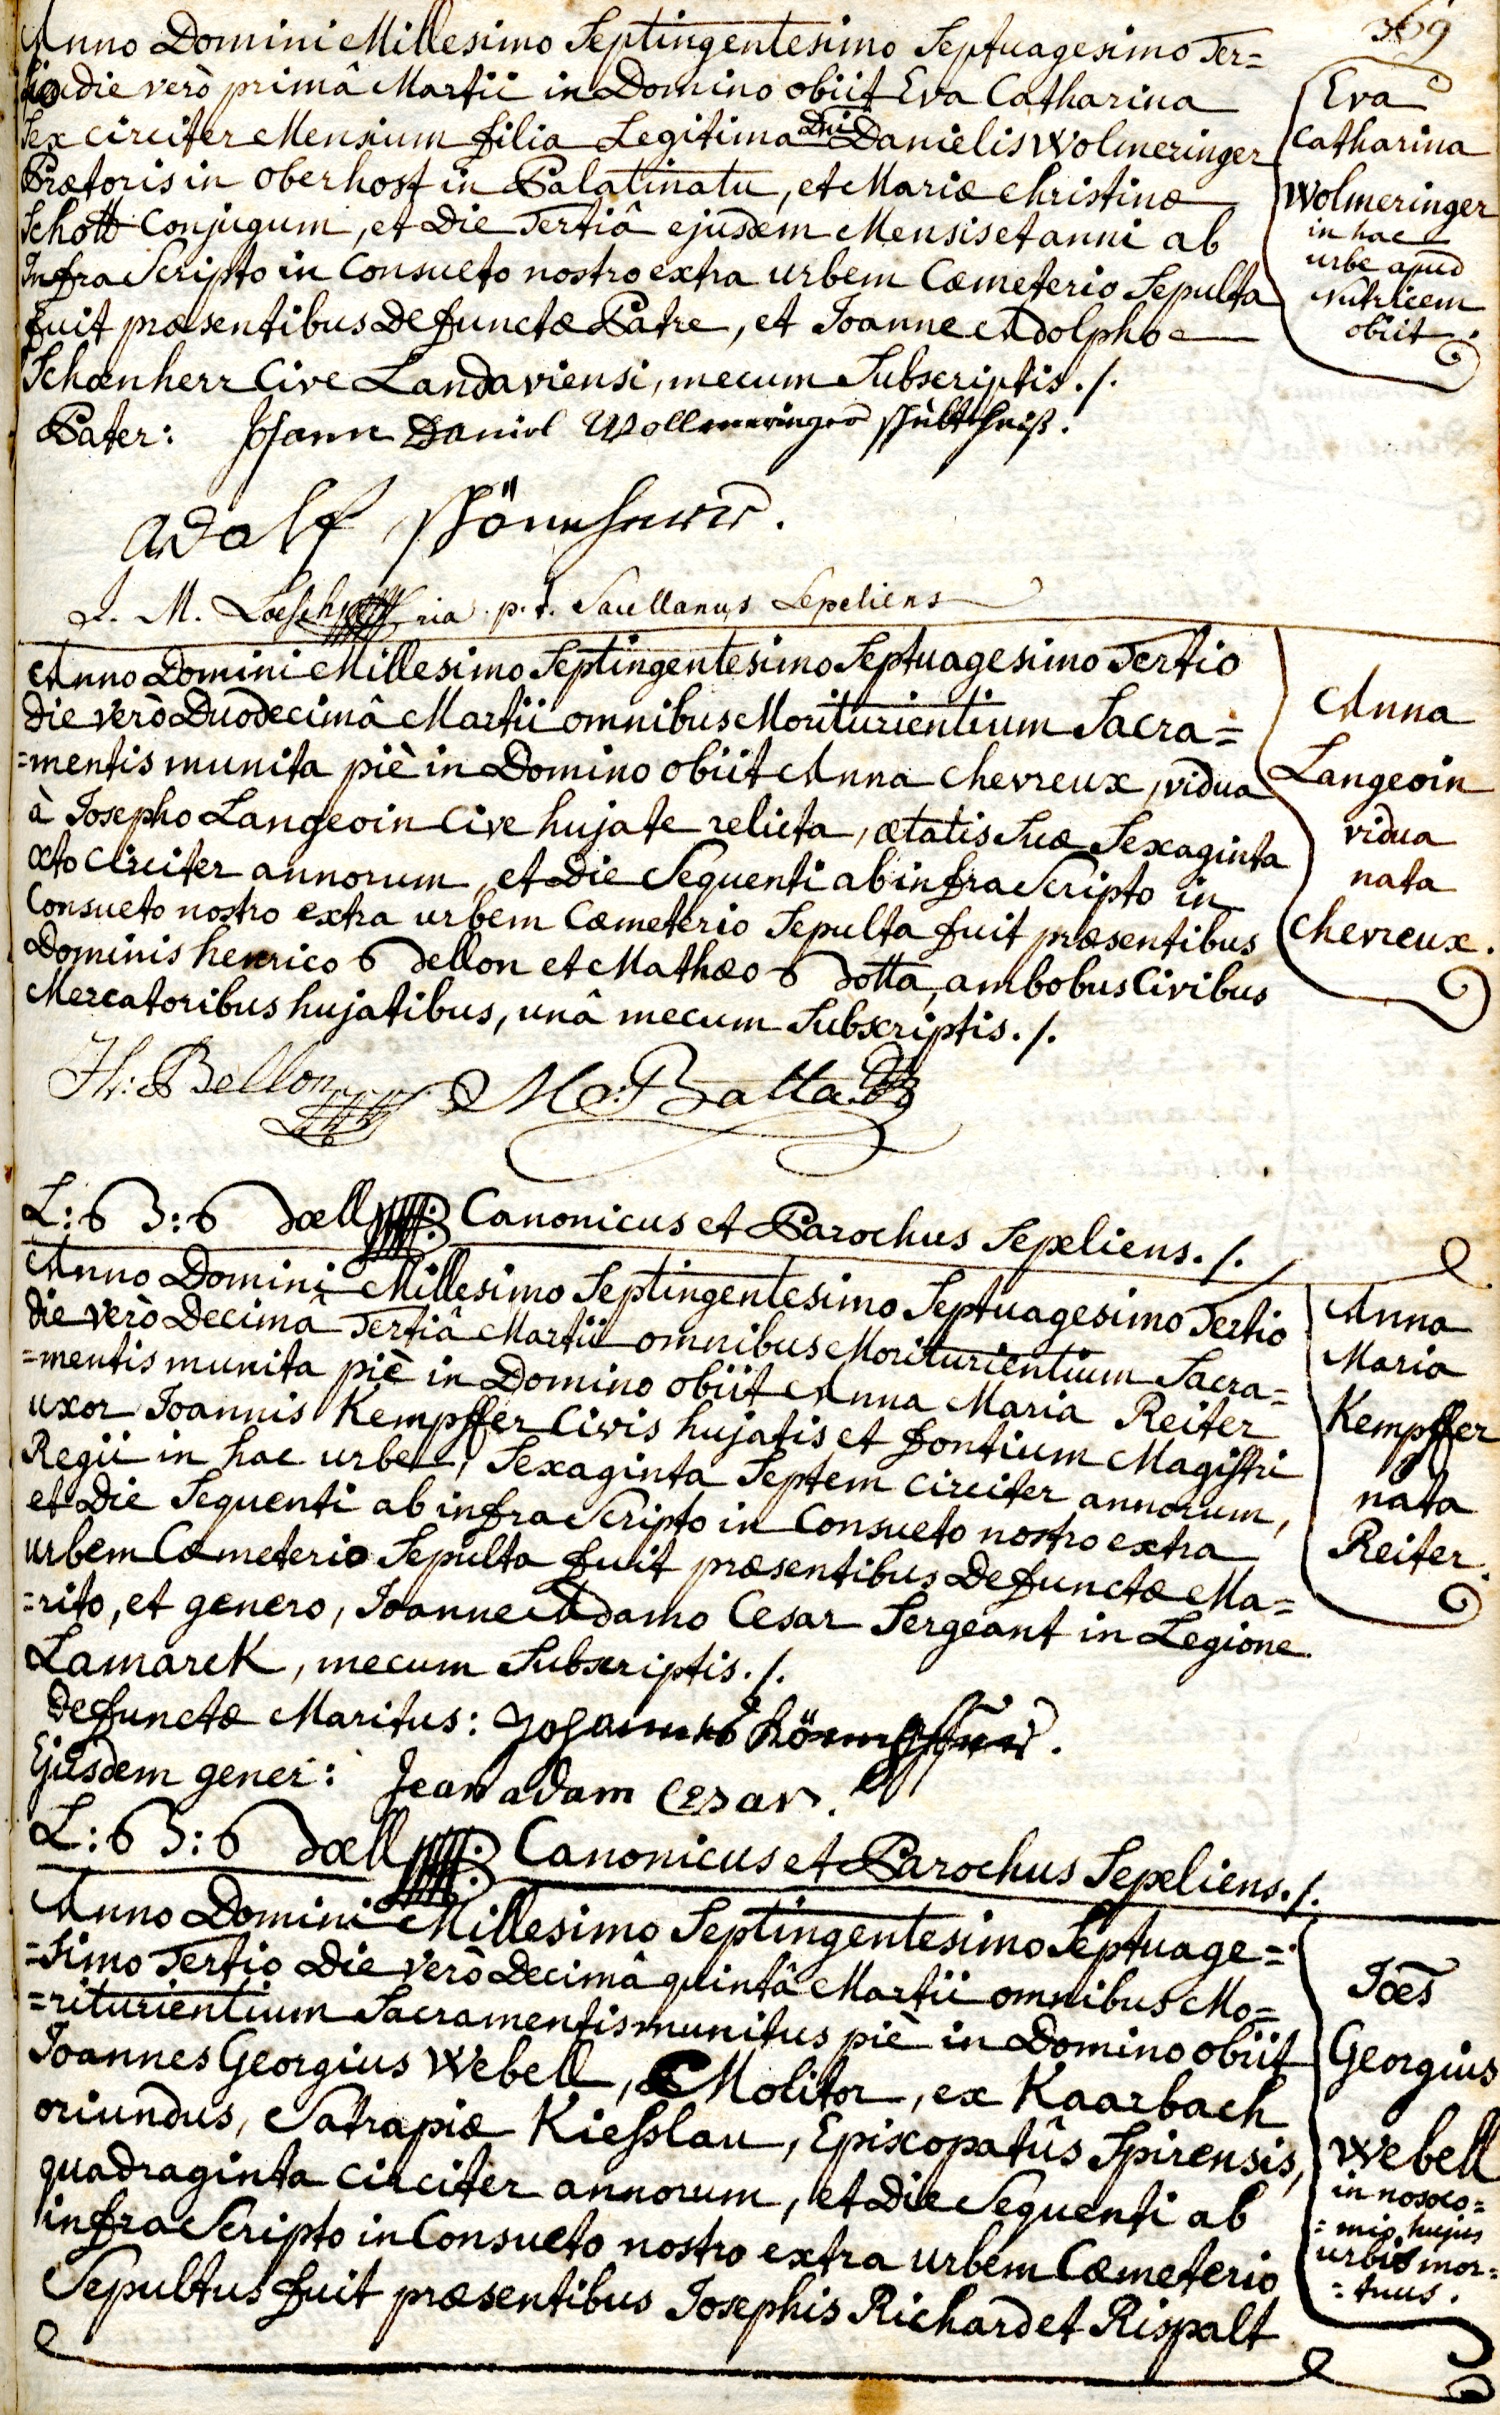 369
Anno Domini Millesimo Septingentesimo Septuagesimo Ter=
tio die verò primâ Martii in Domino obiit Eva Catharina
Sex circiter Mensium filia Legitima Dni Danielis Wolmeringer
Prætoris in oberhost in Palatinatu, et Mariæ Christinæ
Schott Conjugum, et Die Tertiâ ejusdem Mensis et anni ab
Infra Scripto in Consueto nostro extra urbem Cæmeterio Sepulta
fuit præsentibus Defunctæ Patre, et Joanne Adolpho
Schœnherr Cive Landaviensi, mecum Subscriptis ./.
Pater: Johann Daniel Wollmeringer schultheiß.
Adolf schönherr.
J. M. Loesch p. t. Sacellanus Sepeliens
Eva
Catharina
Wolmeringer
in hac
urbe apud
Nutricem
obiit.
Anno Domini Millesimo Septingentesimo Septuagesimo Tertio
die verò Duodecimâ Martii omnibus Moriturientium Sacra=
=mentis munita piè in Domino obiit Anna Chevreux, vidua
à Josepho Langeoin Cive hujate relicta, ætatis Suæ Sexaginta
octo Circiter annorum, et Die Sequenti ab infra Scripto in
Consueto nostro extra urbem Cæmeterio Sepulta fuit præsentibus
Dominis henrico Bellon et Mathæo Botta, ambobus Civibus
Mercatoribus hujatibus, unâ mecum Subscriptis ./.
H: Bellon M: Batta
L: B: Bœll Canonicus et Parochus Sepeliens ./.
Anna
Langeoin
vidua
nata
Chevreux.
Anno Domini Millesimo Septingentesimo Septuagesimo Tertio
die verò Decimâ Tertiâ Martii omnibus Moriturientium Sacra=
=mentis munita piè in Domino obiit Anna Maria Reiter
uxor Joannis Kempffer Civis hujatis et fontium Magistri
Regii in hac urbe, Sexaginta Septem circiter annorum,
et Die Sequenti ab infra Scripto in Consueto nostro extra
urbem Cæmeterio Sepulta fuit præsentibus Defunctæ Ma=
=rito, et genero, Joanne Adamo Cesar Sergeant in Legione
Lamarck, mecum Subscriptis ./.
Defunctæ Maritus: Johannes
Ejusdem gener: Jean adam Cesar.
L: B: Bœll Canonicus et Parochus Sepeliens ./.
Anna
Maria
Kempffer
nata
Reiter.
Anno Domini Millesimo Septingentesimo Septuage=
=simo Tertio Die verò Decimâ quintâ Martii omnibus Mo=
=riturientium Sacramentis munitus piè in Domino obiit
Joannes Georgius Webell, Molitor, ex Kaarbach
oriundus, Satrapiæ Kießlau, Episcopatûs Spirensis,
quadraginta Circiter annorum, et Die Sequenti ab
infra Scripto in Consueto nostro extra urbem Cæmeterio
Sepultus fuit præsentibus Josephis Richard et Rispalt
Joēs
Georgius
Webell
in nosoco=
=mio hujus
urbis mor=
=tuus.